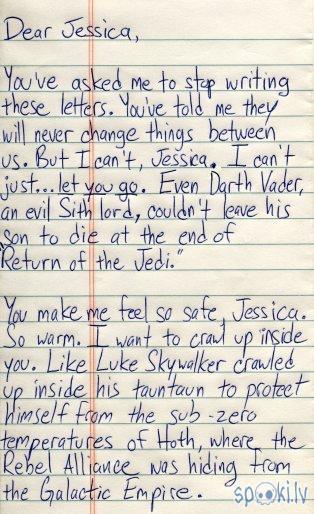 Dear Jessica,
You've asked me to stop writing
these letters. You've told me they
will never change things between
us. But I can't, Jessica. I can't
just...let you go. Even Darth Vader,
an evil Sith lord, couldn't leave his
son to die at the end of
"Return of the Jedi."
You make me feel so safe, Jessica.
So warm. I want to crawl up inside
you. Like Luke Skywalker crawled
up inside his tauntaun to protect
himself from the sub-zero
temperatures of Hoth, where the
Rebel Alliance was hiding from
the Galactic Empire.
spoki.lv